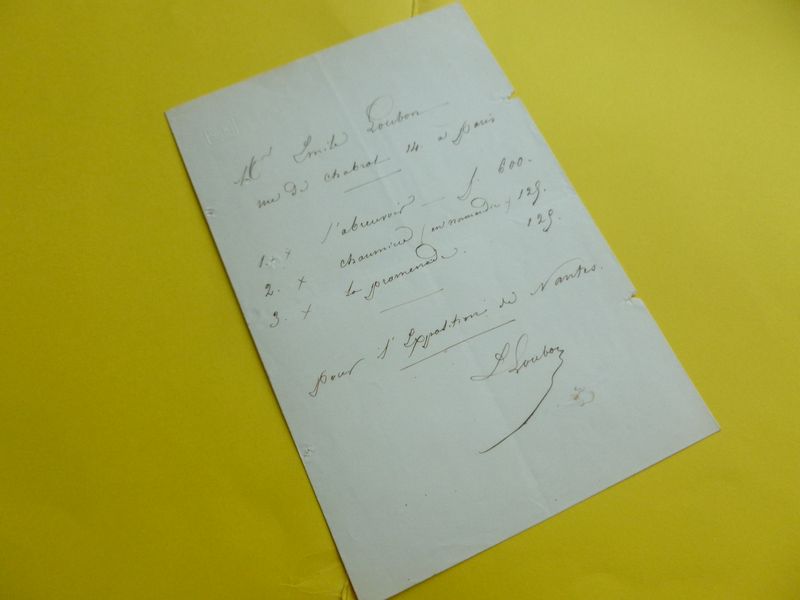 Mr Emile Loubon
rue de chabrol 14. à Paris
1. x l'abreuvoir — f. 600.
2. x chaumière (en normandie) 125.
3. x la promenade. 125.
pour l'Exposition de Nantes.
E Loubon